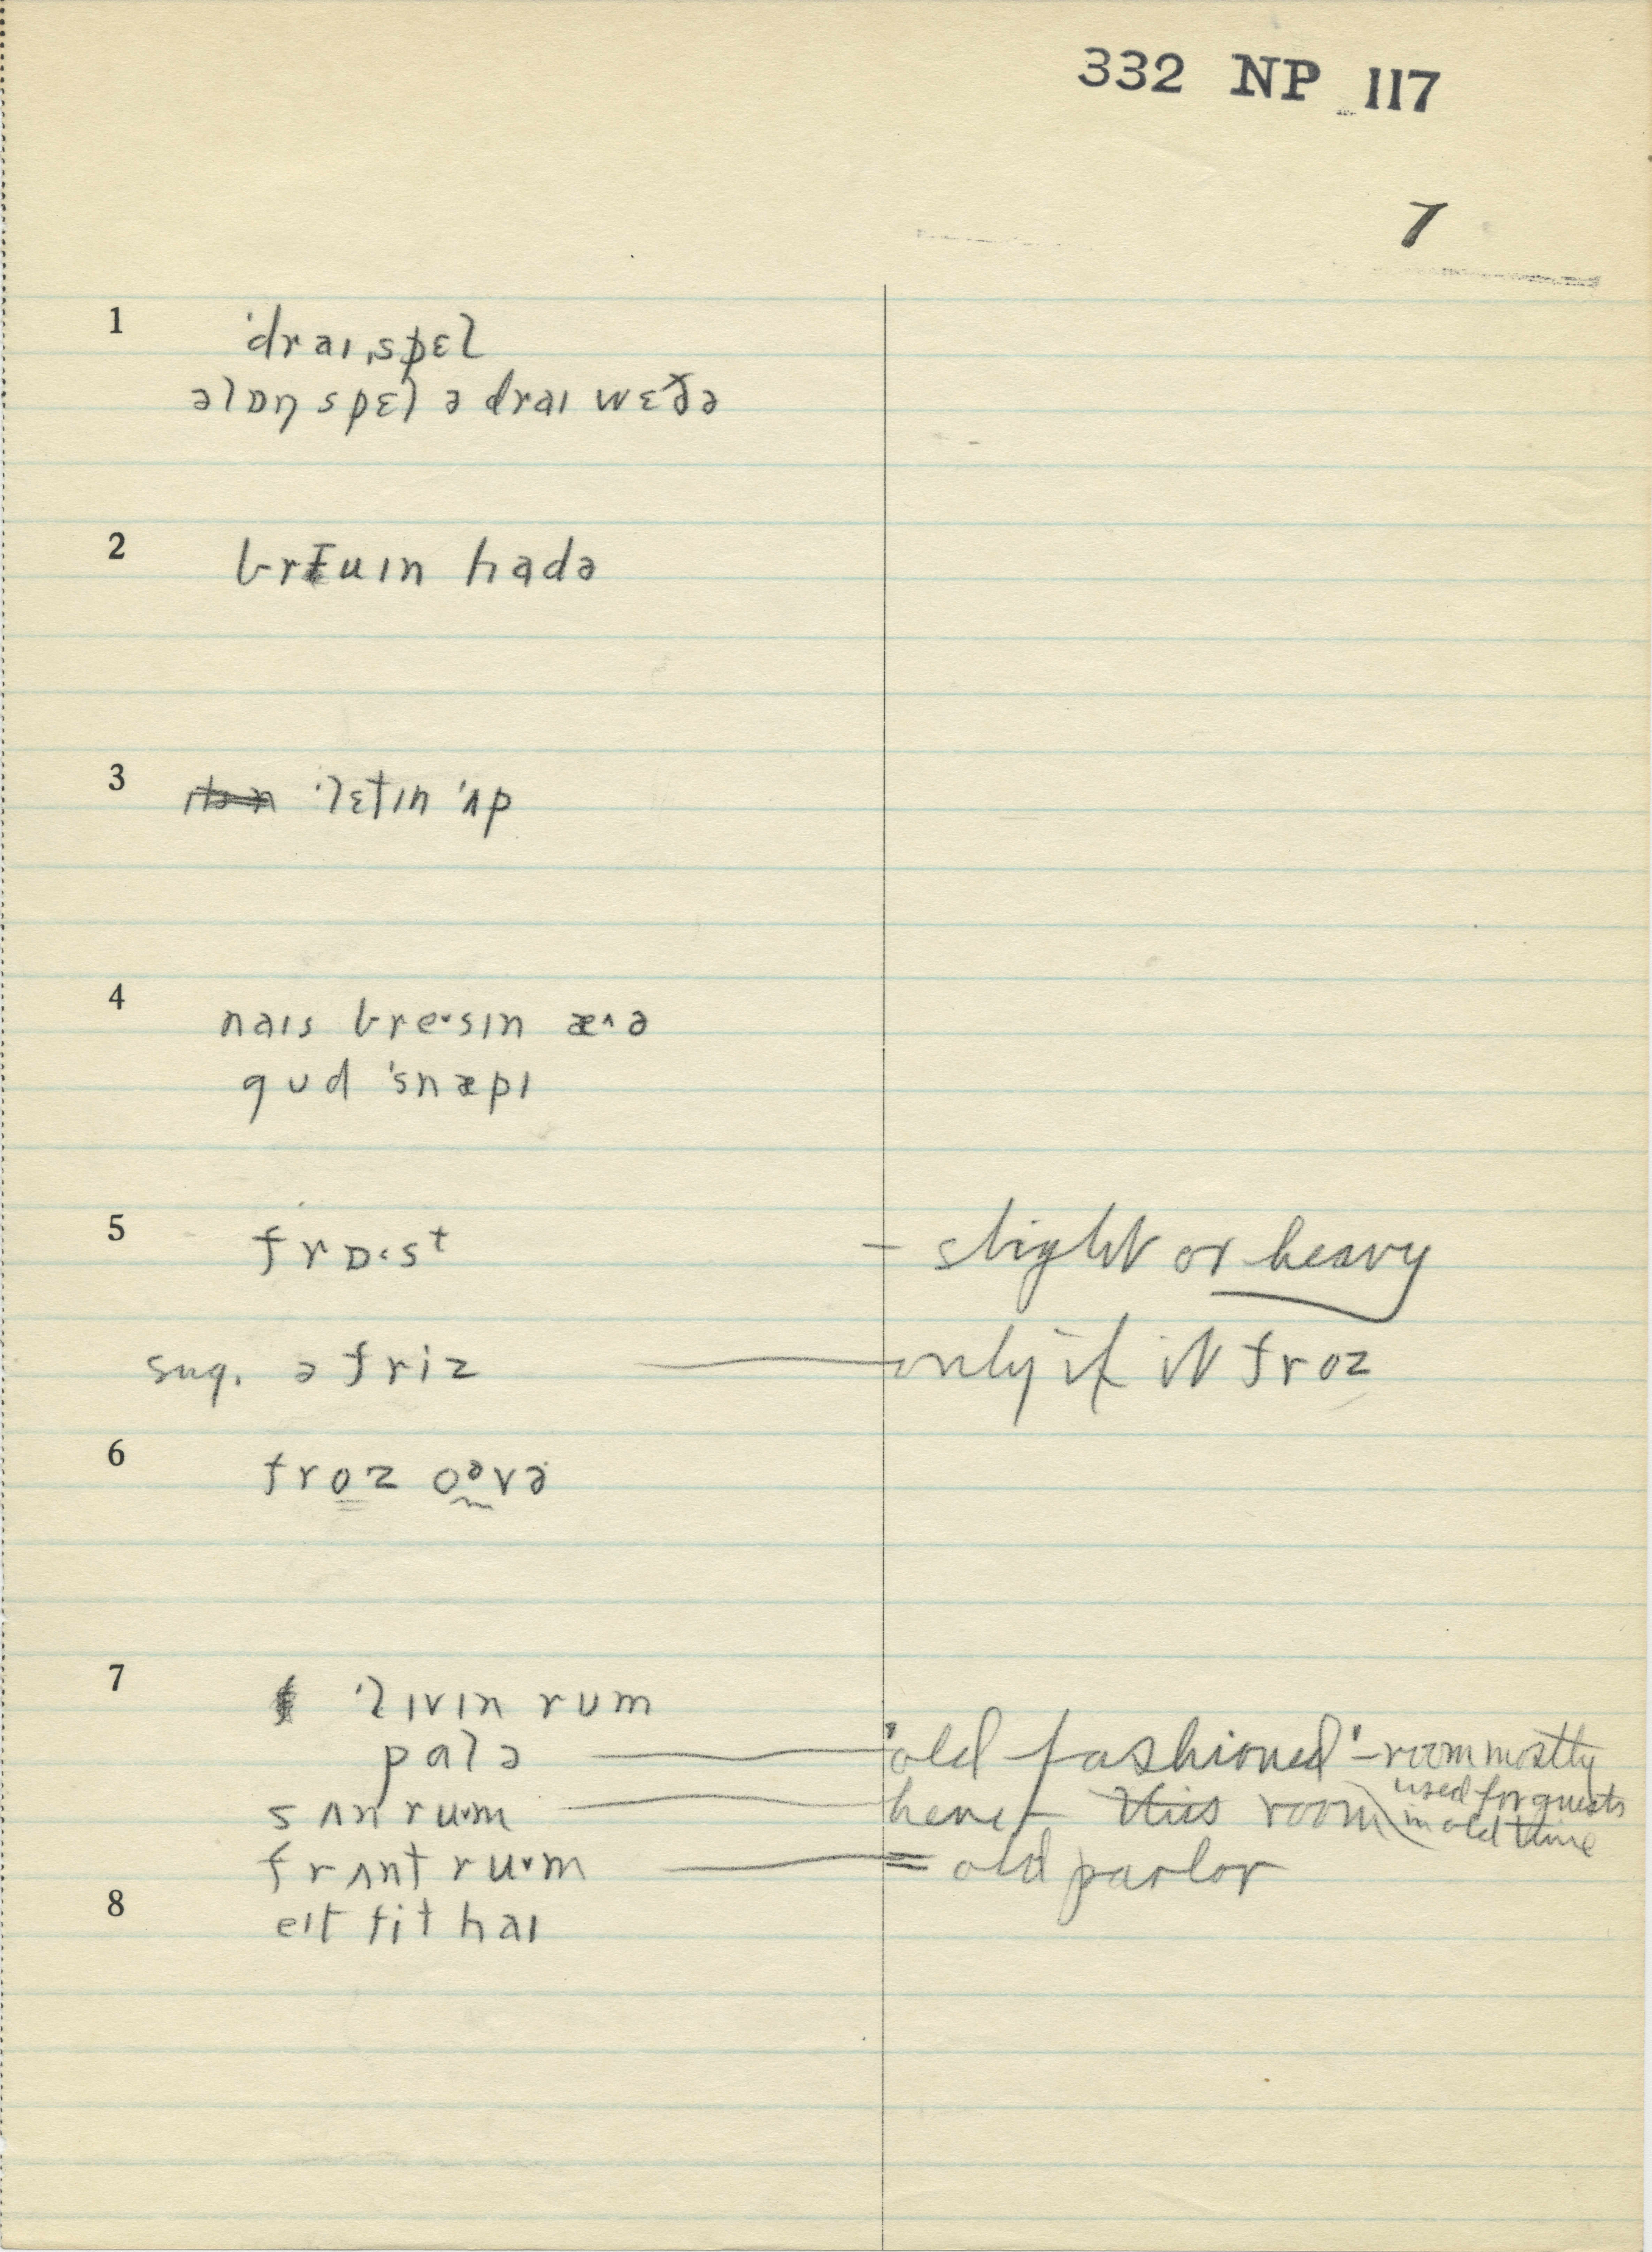 332 NP 117
7
1 ˈdraɪˌspɛl
əlɒŋ spɛl ə draɪ wɛðə
2 briuɪn hadə
3 ˈlɛtɪn ˈʌp
4 naɪs bre·sɪn æ^ə
gud ˈsnæpɪ
5 frɒ·st — slight or heavy
sug. ə friz — only if it froz
6 froz oᵊvə
7 ˈlɪvɪn rum
palə — "old fashioned" – room mostly
used for guests
in old time
sʌn rum — here – this room
frʌnt rum — = old parlor
8 eɪt fit haɪ